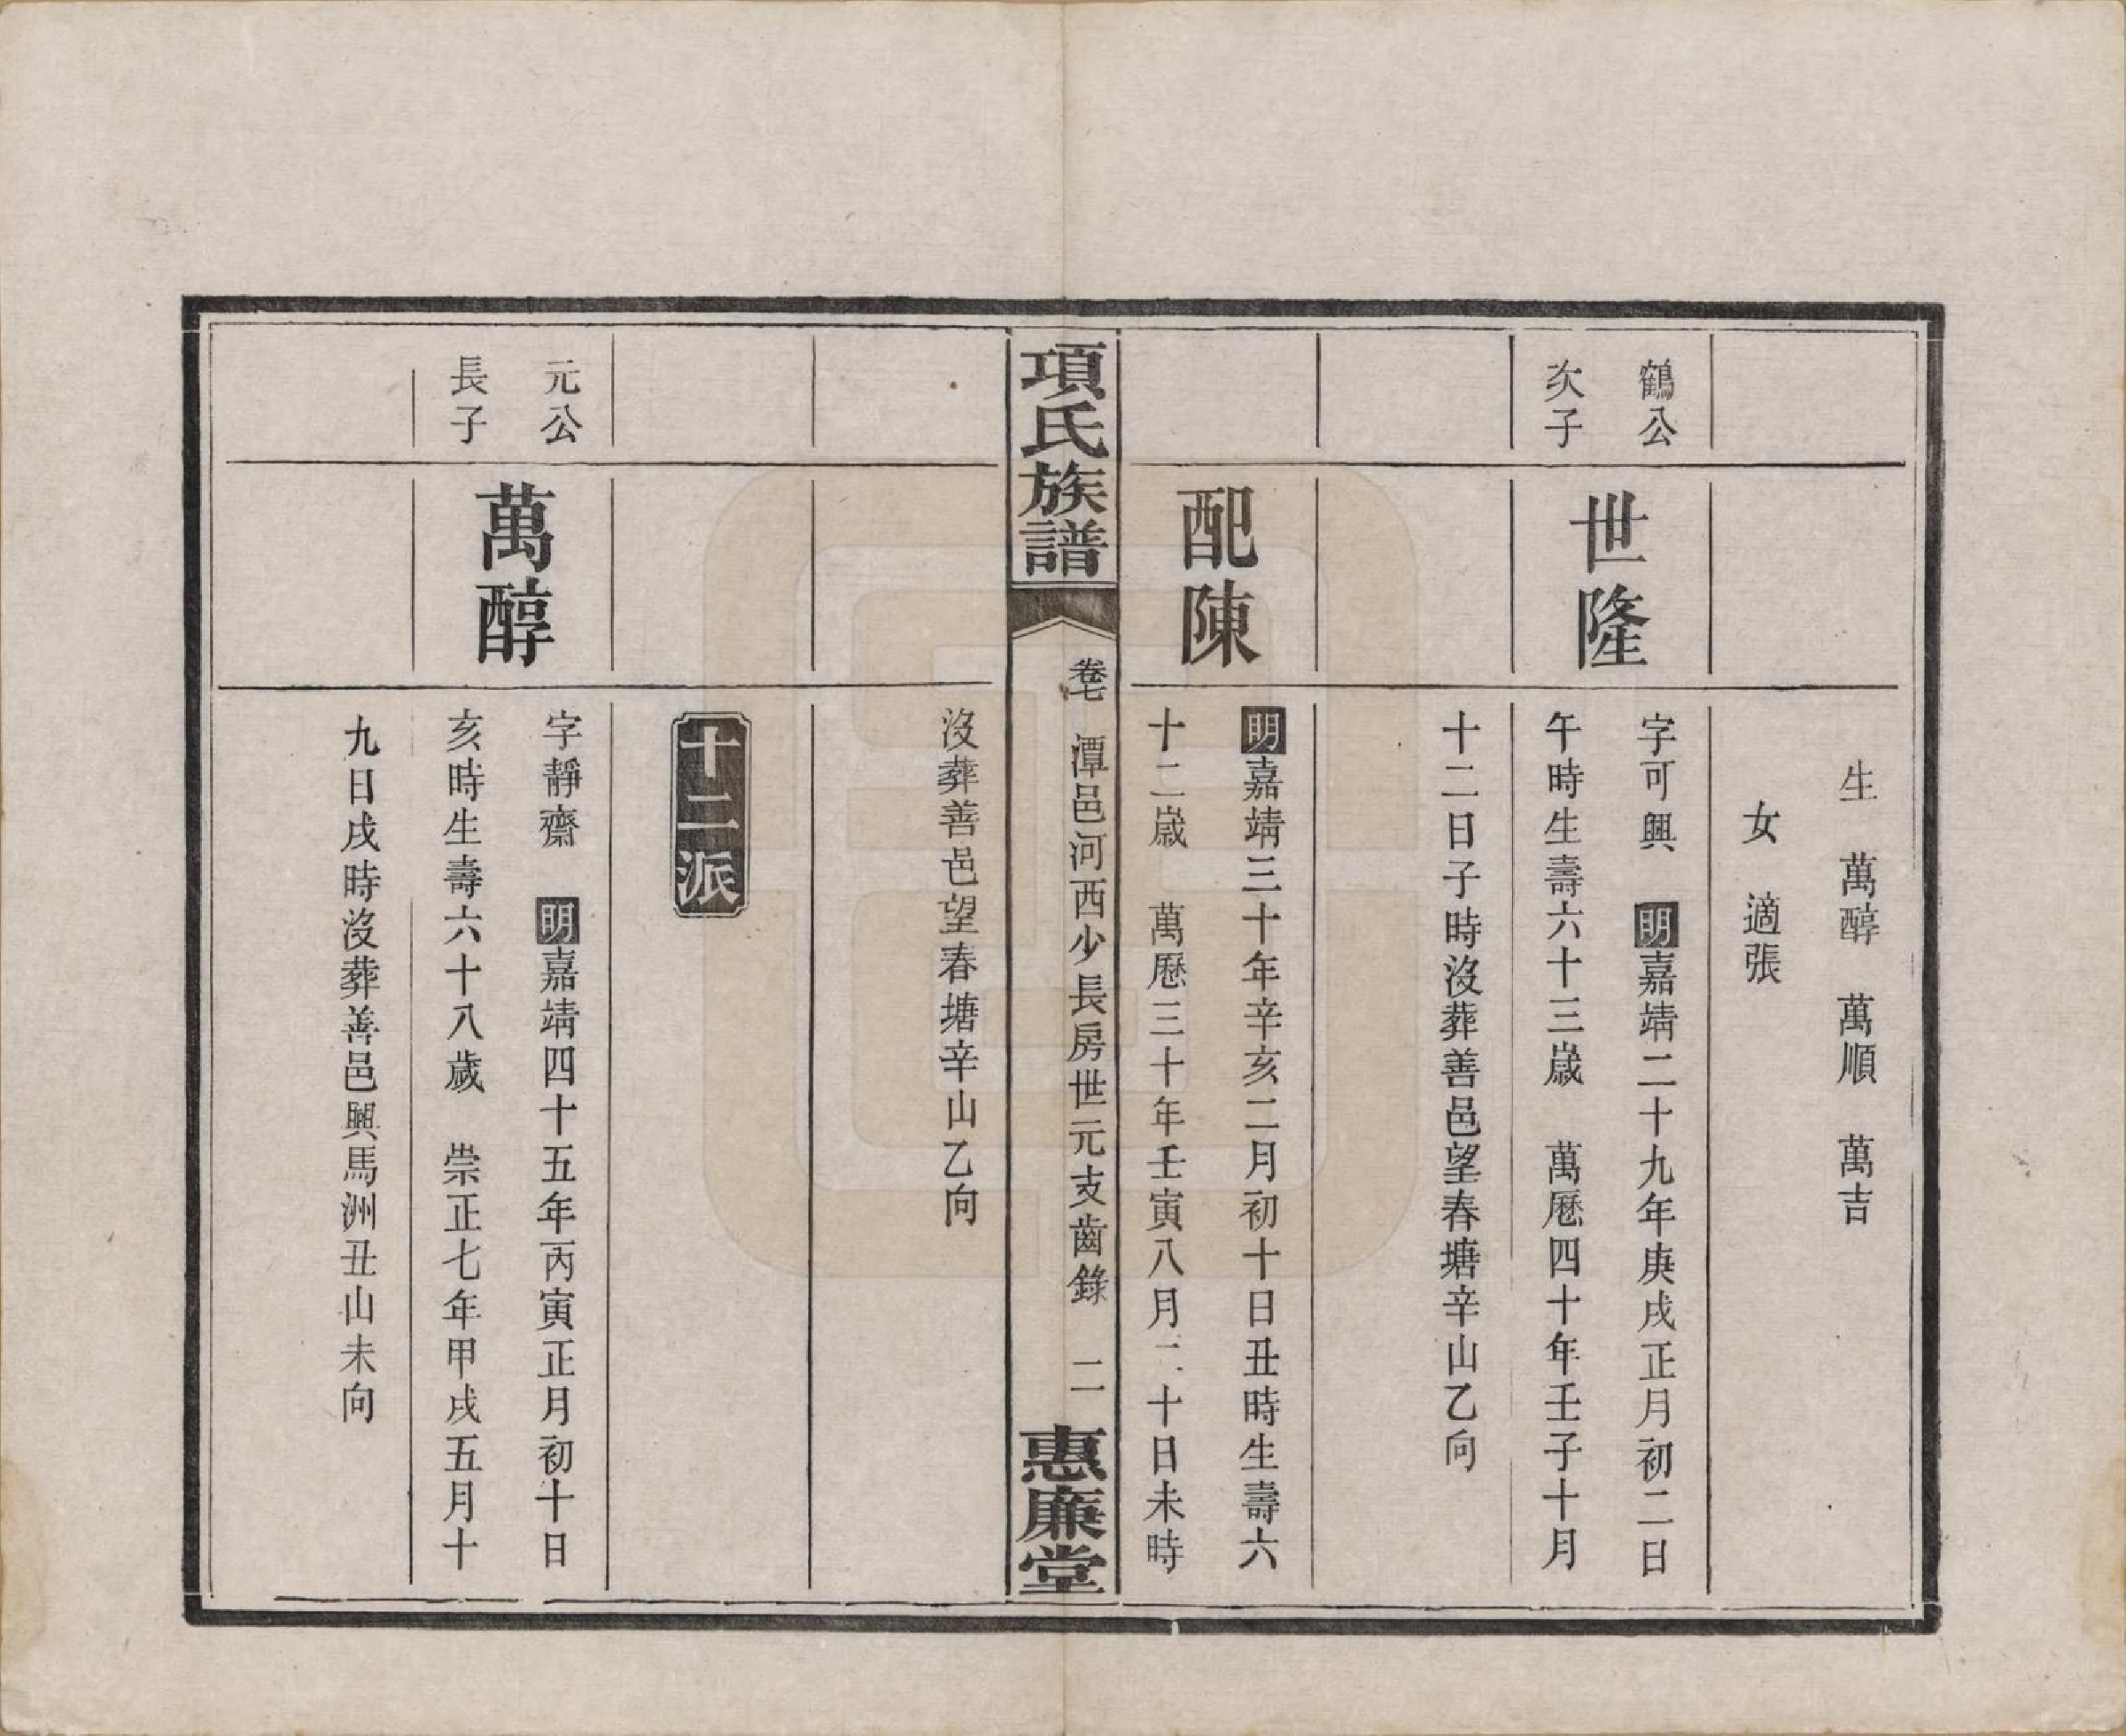 生　萬醇　萬順　萬吉
女　適張
鶴公
次子
世隆
字可興　明嘉靖二十九年庚戌正月初二日
午時生壽六十三歲　萬曆四十年壬子十月
十二日子時沒葬善邑望春塘辛山乙向
配陳
明嘉靖三十年辛亥二月初十日丑時生壽六
十二歲　萬曆三十年壬寅八月二十日未時
項氏族譜
卷七　潭邑河西少長房世元支齒錄　二
惠廉堂
沒葬善邑望春塘辛山乙向
十二派
元公
長子
萬醇
字靜齋　明嘉靖四十五年丙寅正月初十日
亥時生壽六十八歲　崇正七年甲戌五月十
九日戌時沒葬善邑興馬洲丑山未向